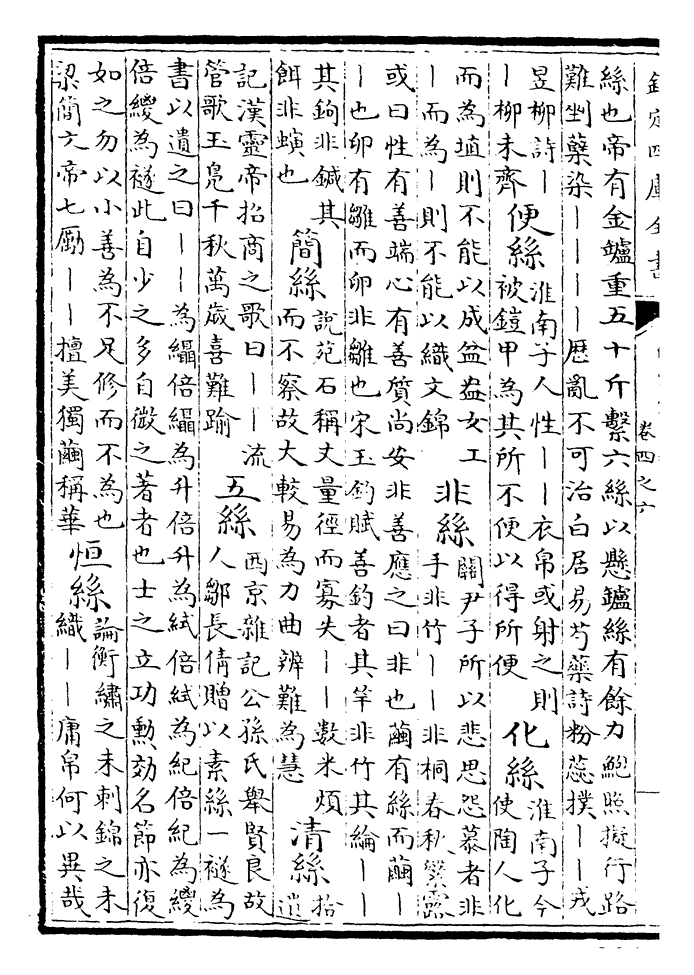 欽定四庫全書
卷四之六
絲也帝有金鑪重五十斤繫六絲以懸鑪絲有餘力鮑照擬行路
難剉蘗染丨丨丨丨歴亂不可治白居易芍藥詩粉蕊撲丨丨戎
昱柳詩丨
丨柳未齊
便絲
淮南子人性丨丨衣帛或射之則
被鎧甲為其所不便以得所便
化絲
淮南子今
使陶人化
而為埴則不能以成盆盎女工
丨而為丨則不能以織文錦
非絲
關尹子所以悲思怨慕者非
手非竹丨丨非桐春秋繁露
或曰性有善端心有善質尚安非善應之曰非也繭有絲而繭丨
丨也卵有雛而卵非雛也宋玉釣賦善釣者其竿非竹其綸丨丨
其鉤非鍼其
餌非螾也
簡絲
說苑石稱丈量徑而寡失丨丨數米煩
而不察故大較易為力曲辨難為慧
清絲
拾
遺
記漢靈帝招商之歌曰丨丨流
管歌玉鳧千秋萬歲喜難踰
五絲
西京雜記公孫氏舉賢良故
人鄒長倩贈以素絲一襚為
書以遺之曰丨丨為繦倍繦為升倍升為緎倍緎為紀倍紀為緵
倍緵為襚此自少之多自微之著者也士之立功勲効名節亦復
如之勿以小善為不足修而不為也
梁簡文帝七勵丨丨擅美獨繭稱華
恒絲
論衡繡之未刺錦之未
織丨丨庸帛何以異哉